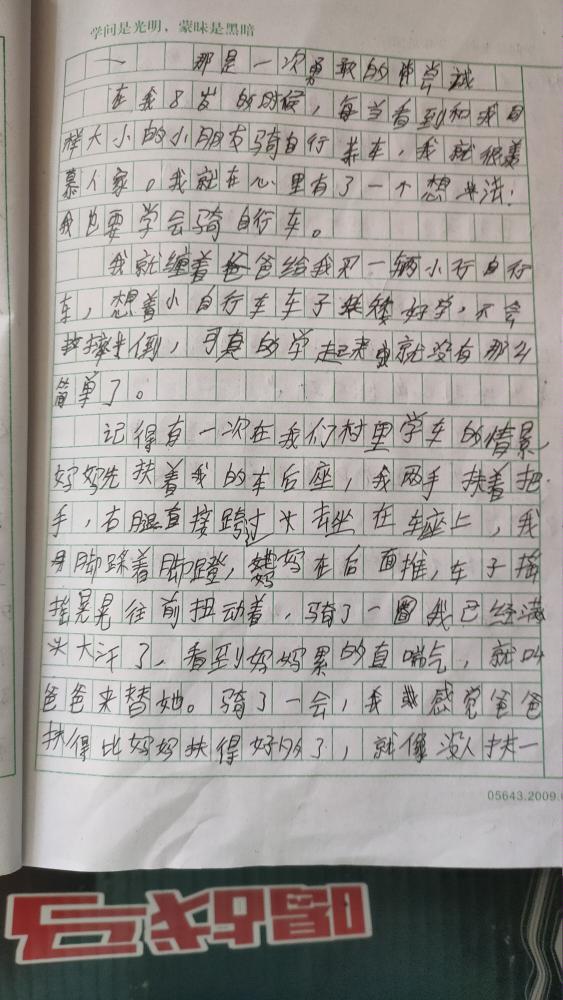 学问是光明，蒙昧是黑暗
那是一次勇敢的尝试
在我8岁的时候，每当看到和我同
样大小的小朋友骑自行车，我就很羡
慕人家。我就在心里有了一个想法：
我也要学会骑自行车。
我就缠着爸爸给我买一辆小行自行
车，想着小自行车车子矮好学，不会
摔倒，可真的学起来就没有那么
简单了。
记得有一次在我们村里学车的情景，
妈妈先扶着我的车后座，我两手扶着把
手，右腿直接跨过去坐在车座上，我
脚踩着脚蹬，妈妈在后面推，车子摇
摇晃晃往前扭动着，骑了一圈我已经满
头大汗了，看到妈妈累的直喘气，就叫
爸爸来替她。骑了一会，我感觉爸爸
扶得比妈妈扶得好多了，就像没人扶一
05643.2009.